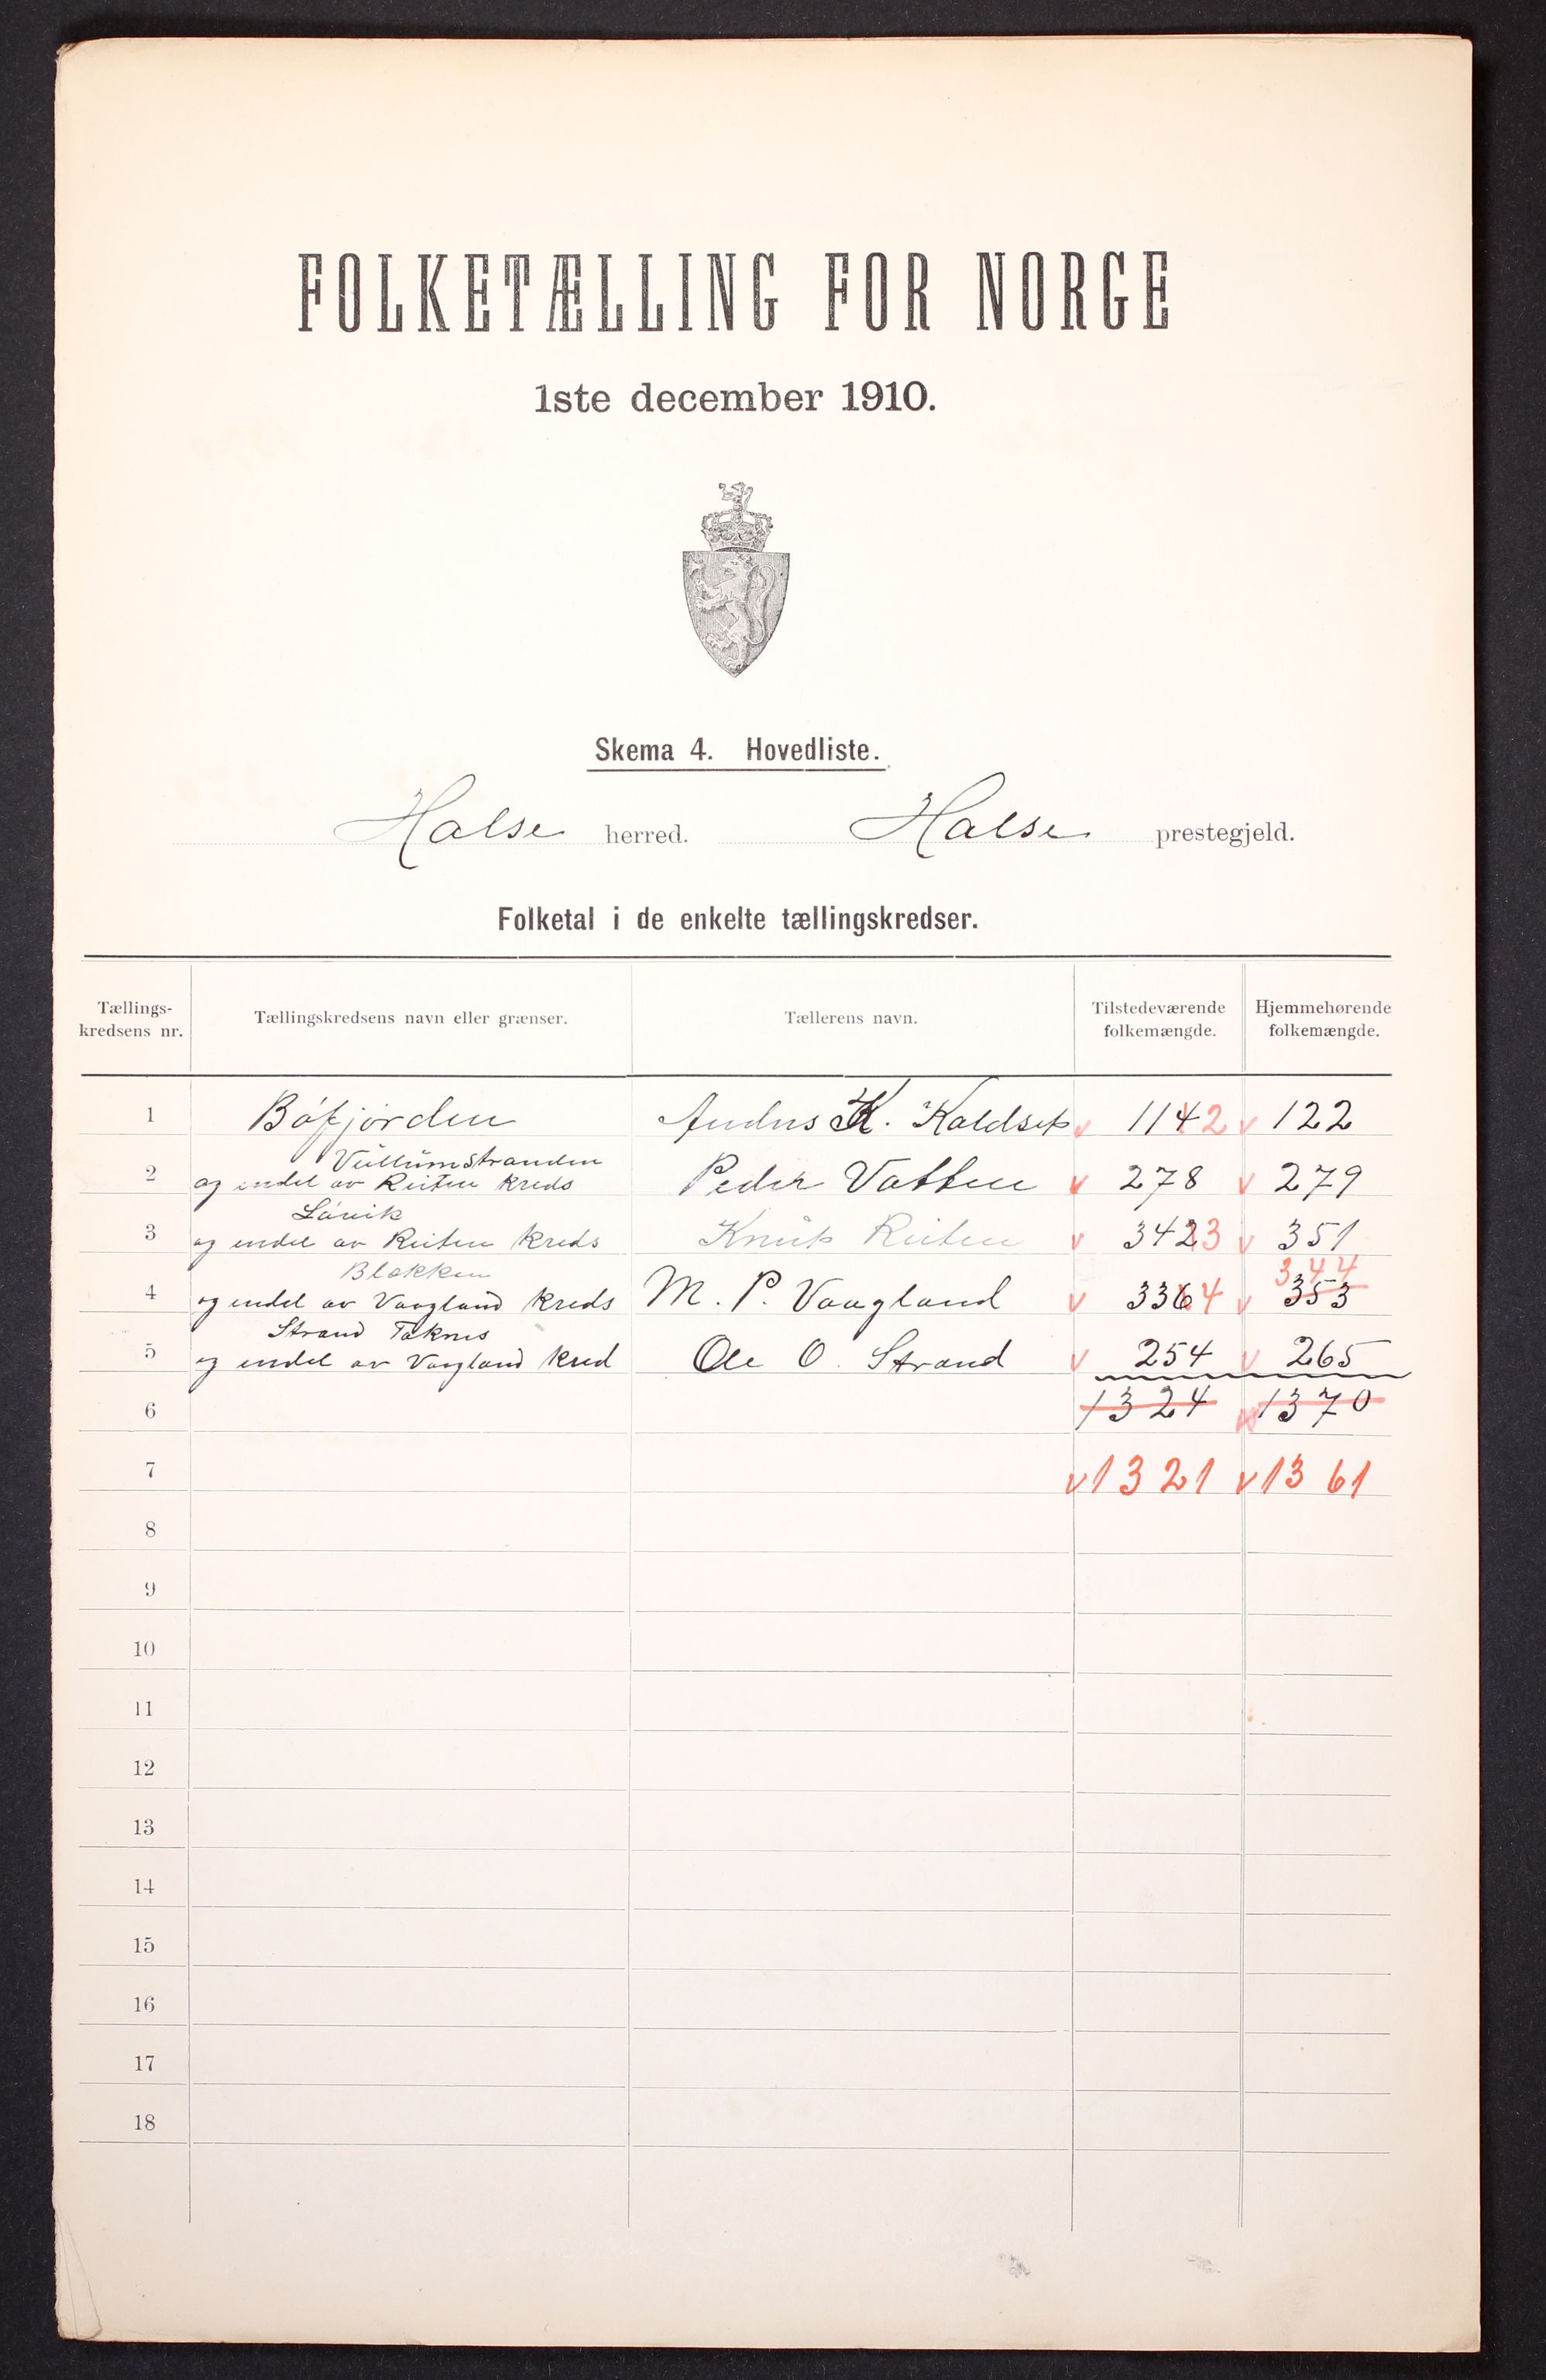 FOLKETÆLLING FOR NORGE
1ste december 1910.
Skema 4. Hovedliste.
Halse herred. Halse prestegjeld.
Folketal i de enkelte tællingskredser.
Tællings-
kredsens nr.
Tællingskredsens navn eller grænser.
Tællerens navn.
Tilstedeværende
folkemængde.
Hjemmehørende
folkemængde.
1 Bøfjorden K. 1142 122
Vullumstranden
2 og endel av Reiten kreds Peder Vatten 278 279
3 og endel av Reiten kreds Knut Reiten 3423 351
Blekken 344
4 og endel av Vaagland kreds M. P. Vaagland 3364 353
Strand Taknes
5 og endel av Vaagland kred Ole O. Strand 254 265
6 1324 1370
7 1321 1361
8
9
10
11
12
13
14
15
16
17
18